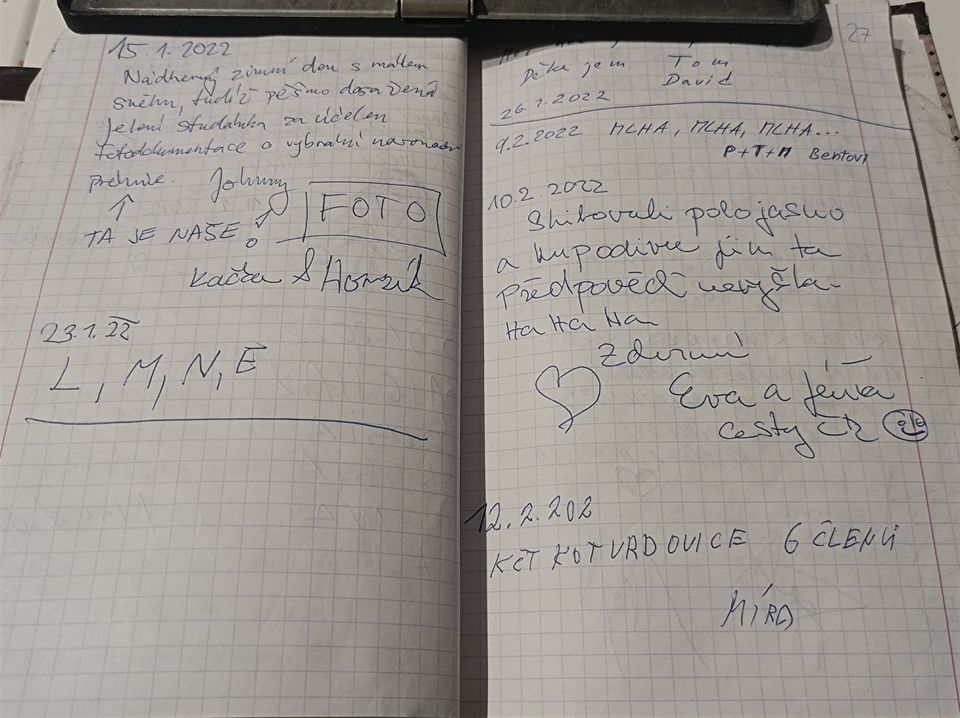 15.1.2022
Nádherný zimní den s málem
sněhu, tudíž pěšmo dosažená
Jelení studánka za účelem
fotodokumentace a vybrální
Johnny
FOTO
TA JE NAŠE
Kačka & Honzík
23.1.22
L, M, N, E
27
Tom
David
26.1.2022
9.2.2022 MLHA, MLHA, MLHA...
P+T+M
10.2.2022
Slibovali polojasno
a kupodivu jim ta
předpověď nevyšla.
Ha Ha Ha
Zdraví
Eva a Jéňa
Cesty ČR
12.2.202
KČT KOTVRDOVICE 6 ČLENŮ
MÍRA